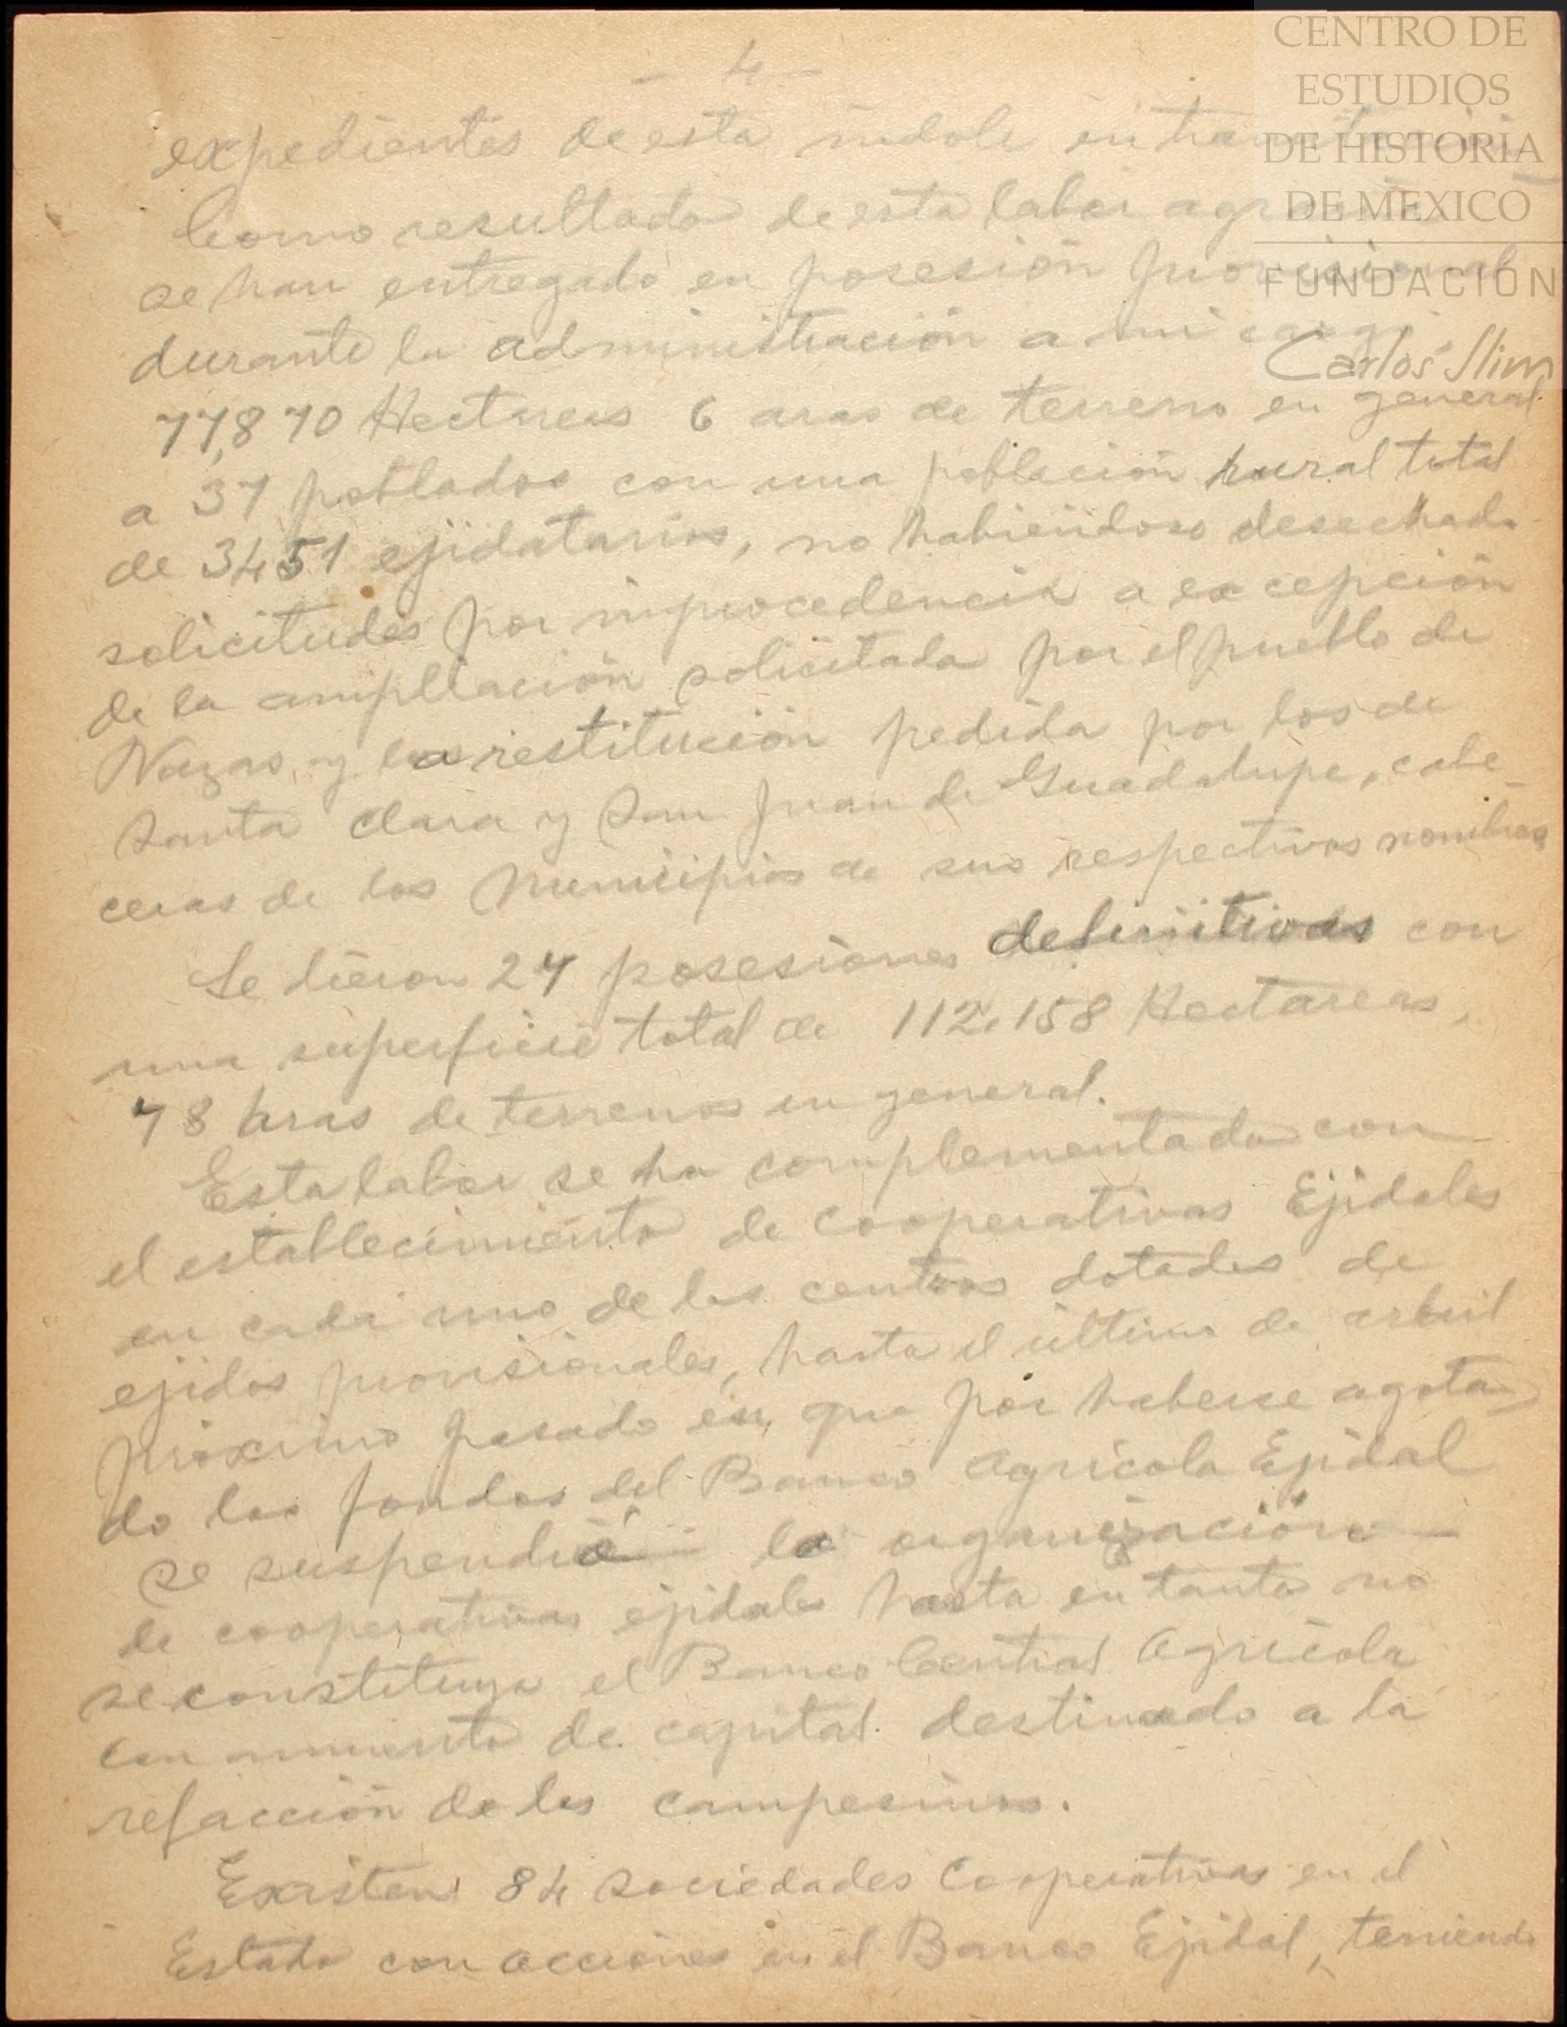 - 4 -
expedientes de esta índole en tramitación
Como resultado de esta labor agraria
se han entregado en posesión provisional
durante la administración a mi cargo,
77,870 Hectareas 6 aras de terreno en general
a 37 poblados con una población rural total
de 3451 ejidatarios, no habiendose desechado
solicitudes por improcedencia a excepción
de la ampliación solicitada por el pueblo de
Nazas, y la restitución pedida por los de
Santa Clara y San Juan de Guadalupe, cabe-
ceras de los Municipios de sus respectivos nombres
Se dieron 27 posesiones definitivas con
una superficie total de 112.158 Hectareas,
78 aras de terrenos en general.
Esta labor se ha complementado con
el establecimiento de cooperativas Ejidales
en cada uno de los centros dotados de
ejidos provisionales, hasta el último de abril
próximo pasado en que por haberse agota-
do los fondos del Banco Agrícola Ejidal
se suspendió la organización
de cooperativas ejidales hasta en tanto no
se constituya el Banco Central Agrícola
con aumento de capital destinado a la
refacción de los campesinos.
Existen 84 Sociedades Cooperativas en el
Estado con acciones en el Banco Ejidal, teniendo
CENTRO DE
ESTUDIOS
DE HISTORIA
DE MEXICO
FUNDACIÓN
Carlos Slim